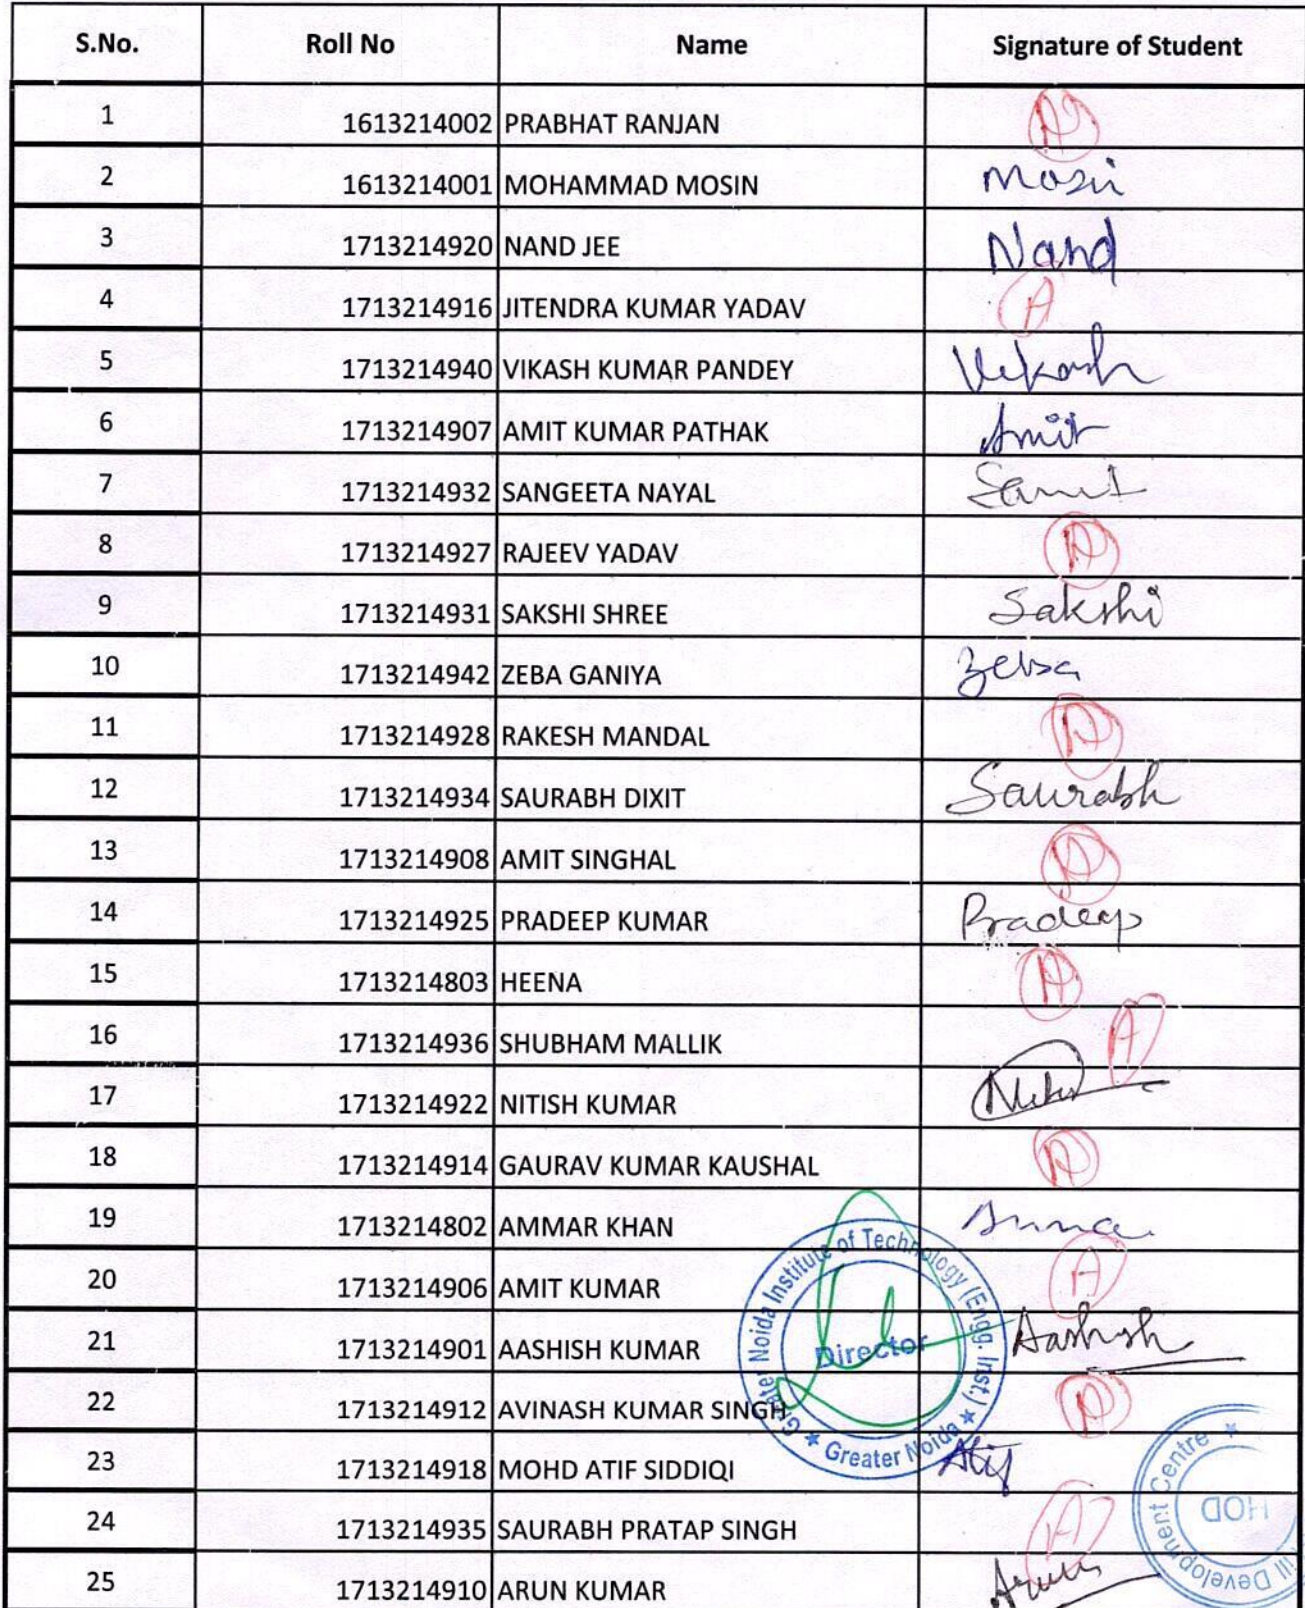 S.No. Roll No Name Signature of Student
1 1613214002 PRABHAT RANJAN A
2 1613214001 MOHAMMAD MOSIN Mosin
3 1713214920 NAND JEE Nand
4 1713214916 JITENDRA KUMAR YADAV A
5 1713214940 VIKASH KUMAR PANDEY Vikash
6 1713214907 AMIT KUMAR PATHAK Amit
7 1713214932 SANGEETA NAYAL
8 1713214927 RAJEEV YADAV A
9 1713214931 SAKSHI SHREE Sakshi
10 1713214942 ZEBA GANIYA Zeba
11 1713214928 RAKESH MANDAL A
12 1713214934 SAURABH DIXIT Saurabh
13 1713214908 AMIT SINGHAL A
14 1713214925 PRADEEP KUMAR Pradeep
15 1713214803 HEENA A
16 1713214936 SHUBHAM MALLIK A
17 1713214922 NITISH KUMAR
18 1713214914 GAURAV KUMAR KAUSHAL A
19 1713214802 AMMAR KHAN
20 1713214906 AMIT KUMAR A
21 1713214901 AASHISH KUMAR Aashish
22 1713214912 AVINASH KUMAR SINGH A
23 1713214918 MOHD ATIF SIDDIQI Atif
24 1713214935 SAURABH PRATAP SINGH A
25 1713214910 ARUN KUMAR Arun
Greater Noida Institute of Technology (Engg. Inst.)
Director
★ Greater Noida ★
ill Development Centre ★
HOD